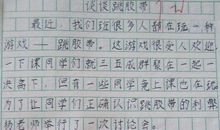 谈谈跳胶带
最近，我们班很多人都在玩一种
游戏——跳胶带。这游戏很受人欢迎
一下课同学们就三五成群聚在一起一
决高下，但有一些同学竟上课也在玩
为了让同学们正确认识跳胶带的利弊
杨老师举行了一次讨论会。